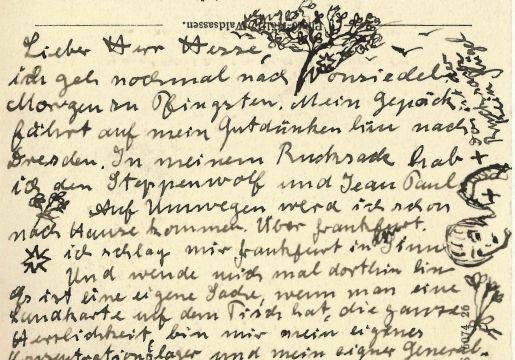 Waldsassen.
Lieber Herr Hesse,
ich geh nochmal nach Wonsiedel
Morgen zu Pfingsten. Mein Gepäck
fährt auf mein Gutdünken hin nach
Dresden. In meinem Rucksack hab
ich den Steppenwolf und Jean Paul
Auf Umwegen werd ich schon
nach Hause kommen. Über Frankfurt.
ich schlag mir Frankfurt in Sinn
Und wende mich mal dorthin hin
Es ist eine eigene Sache, wenn man eine
Landkarte auf dem Tisch hat, die ganze
Herrlichkeit, bin mir mein eigenes
Konzentrationslager und mein eigner General-